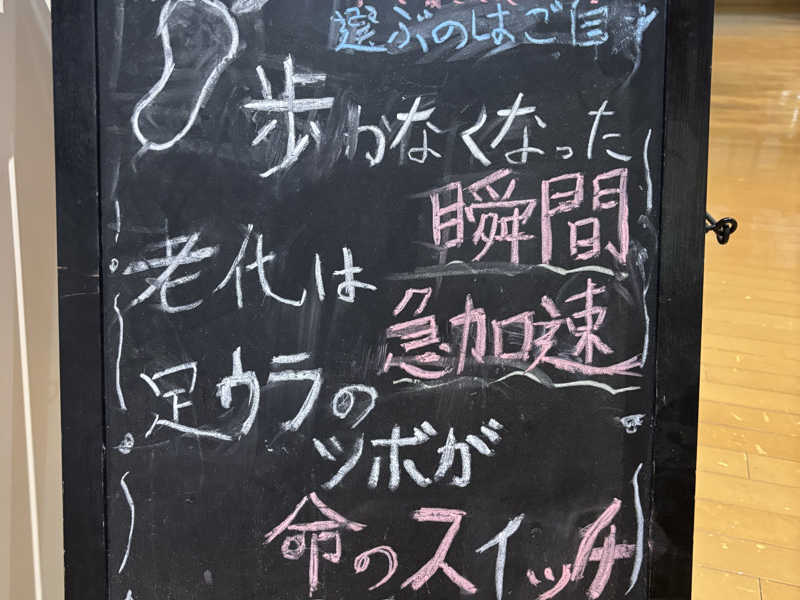 選ぶのはご自
歩かなくなった
瞬間
老代は
急加速
足ウラの
ツボが
命のスイッチ